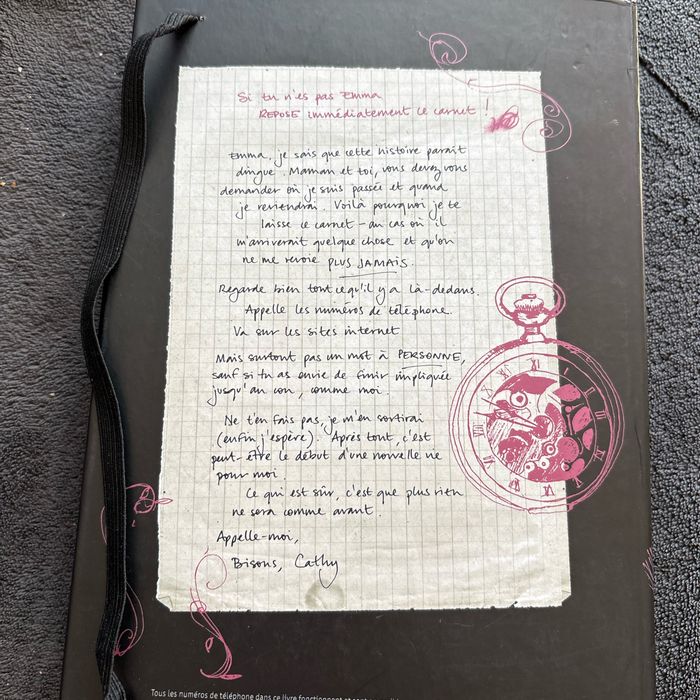 Si tu n'es pas Emma
REPOSE immédiatement ce carnet !
Emma, je sais que cette histoire paraît
dingue. Maman et toi, vous devez vous
demander où je suis passée et quand
je reviendrai. Voilà pourquoi je te
laisse ce carnet – au cas où il
m'arriverait quelque chose et qu'on
ne me revoie PLUS JAMAIS.
Regarde bien tout ce qu'il y a là-dedans.
Appelle les numéros de téléphone.
Va sur les sites internet
Mais surtout pas un mot à PERSONNE,
sauf si tu as envie de finir impliquée
jusqu'au cou, comme moi.
Ne t'en fais pas, je m'en sortirai
(enfin j'espère). Après tout, c'est
peut-être le début d'une nouvelle vie
pour moi.
Ce qui est sûr, c'est que plus rien
ne sera comme avant.
Appelle-moi,
Bisous, Cathy
Tous les numéros de téléphone dans ce livre fonctionnent et